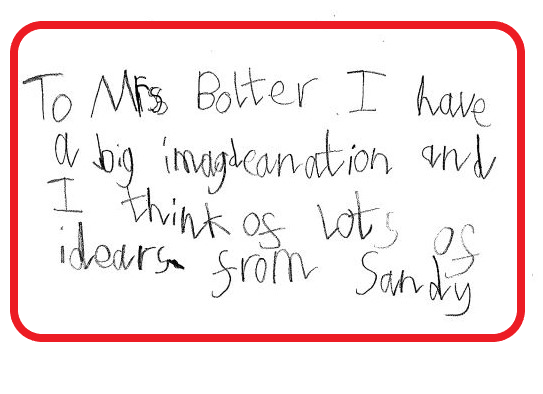 To Mrs Bolter I have
a big imagdeanation and
I think of lots of
idears from Sandy